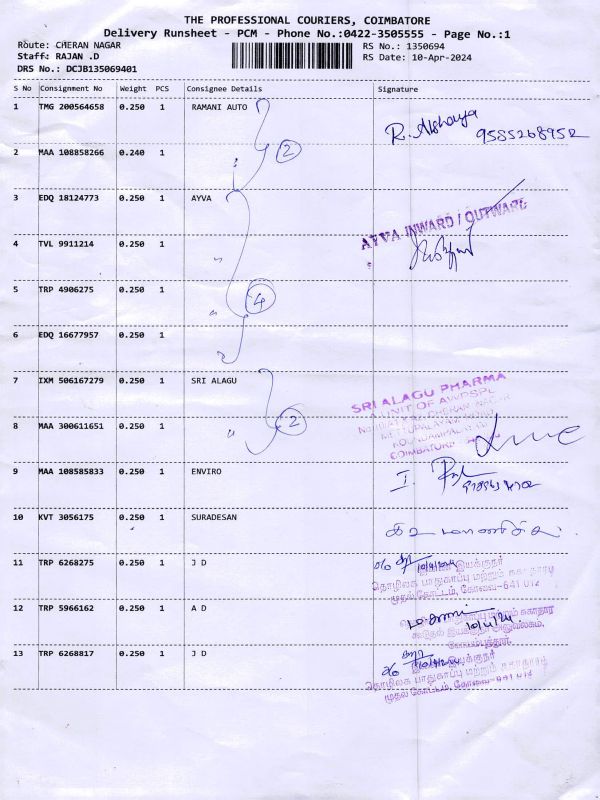 THE PROFESSIONAL COURIERS, COIMBATORE
Delivery Runsheet - PCM - Phone No.:0422-3505555 - Page No.:1
Route: CHERAN NAGAR
RS No.: 1350694
Staff: RAJAN .D
RS Date: 10-Apr-2024
DRS No.: DCJB135069401
S No Consignment No Weight PCS Consignee Details Signature
1 TMG 200564658 0.250 1 RAMANI AUTO
R. Akshaya
9585268952
2 MAA 108858266 0.240 1 2
3 EDQ 18124773 0.250 1 AYVA
AYVA INWARD / OUTWARD
4 TVL 9911214 0.250 1
5 TRP 4906275 0.250 1 4
6 EDQ 16677957 0.250 1
7 IXM 506167279 0.250 1 SRI ALAGU
SRI ALAGU PHARMA
A UNIT OF AWPSPL
8 MAA 300611651 0.250 1 2
COIMBATORE
9 MAA 108585833 0.250 1 ENVIRO
10 KVT 3056175 0.250 1 SURADESAN
11 TRP 6268275 0.250 1 J D
10/4/24
இயக்குநர்
தொழிலக பாதுகாப்பு மற்றும் சுகாதாரம்
முதல் கோட்டம், கோவை-641 012
12 TRP 5966162 0.250 1 A D
மற்றும் சுகாதார
10/4/24
13 TRP 6268817 0.250 1 J D
10/4/24
இயக்குநர்
தொழிலக பாதுகாப்பு மற்றும் சுகாதாரம்
முதல் கோட்டம், கோவை-641 012